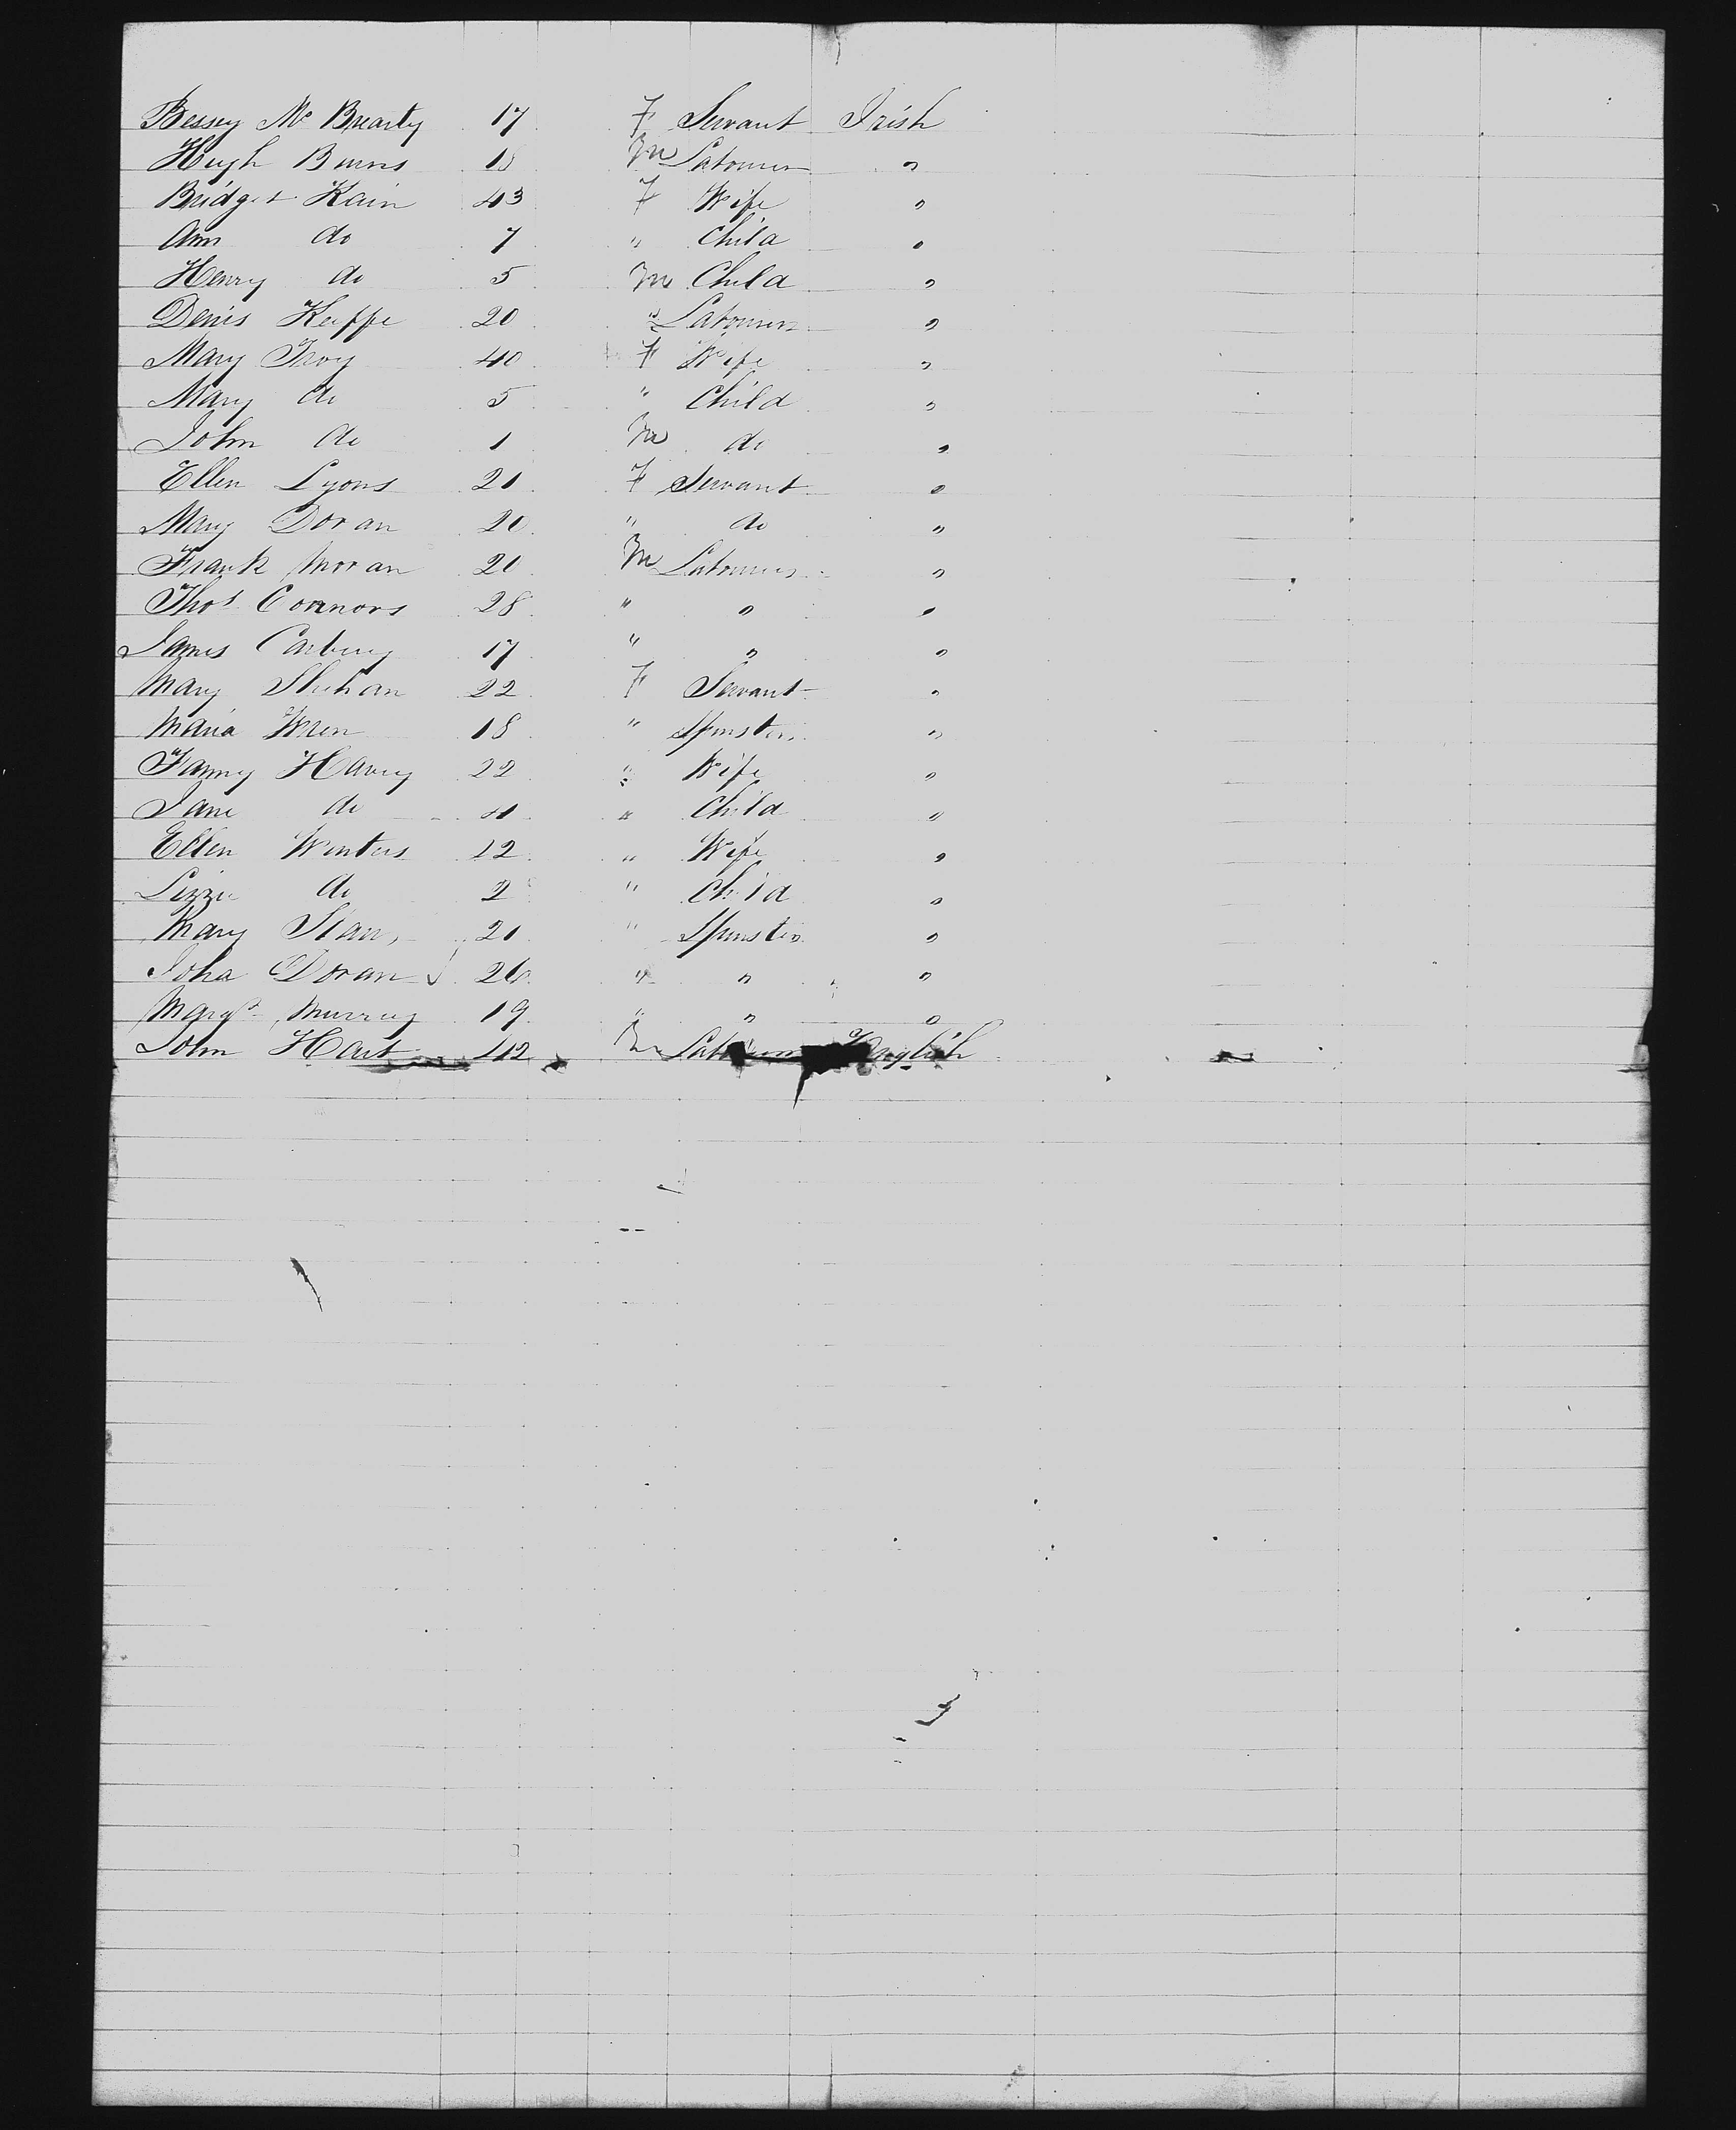 Bessey Mc Brearty 17 F Servant Irish
Hugh Burns 18 M Labourer "
Bridget Kain 43 F Wife "
Ann do 7 " Child "
Henry do 5 M Child "
Denis Keeffe 20 " Labourer "
Mary Troy 40 F Wife "
Mary do 5 " Child "
John do 1 M do "
Ellen Lyons 21 F Servant "
Mary Doran 20 " do "
Frank Moran 20 M Labourer "
Thos Connors 28 " " "
James Carbery 17 " " "
Mary Shehan 22 F Servant "
Maria Wren 18 " Spinster "
Fanny Harvey 22 " Wife "
Jane do " Child "
Ellen Winters " Wife "
Lizzie do 2 " Child "
Mary 21 " Spinster "
Doran 26 " " "
Margt Murray 19 " " "
John Hart 42 M English